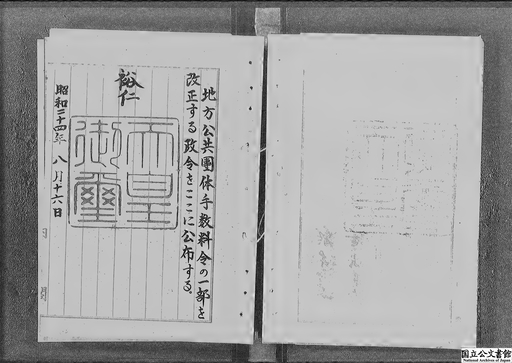 地方公共團体手数料令の一部を
改正する政令をここに公布する。
裕仁
天皇
御璽
昭和二十四年八月十六日
国立公文書館
National Archives of Japan